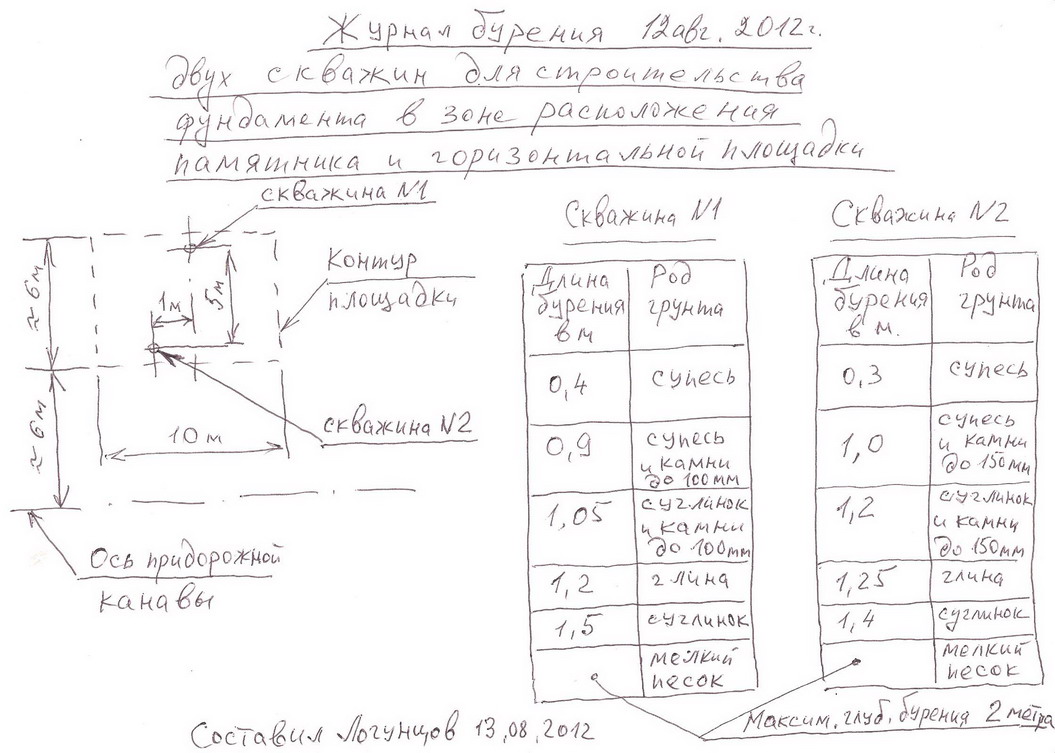 Журнал бурения 12авг. 2012г.
двух скважин для строительства
фундамента в зоне расположения
памятника и горизонтальной площадки
скважина N1
контур
площадки
≈6м
1м
5м
скважина N2
10м
≈6м
Ось придорожной
канавы
Скважина N1
Длина бурения в м | Род грунта
0,4 | супесь
0,9 | супесь и камни до 100мм
1,05 | суглинок и камни до 100мм
1,2 | глина
1,5 | суглинок
мелкий песок
Скважина N2
Длина бурения в м. | Род грунта
0,3 | супесь
1,0 | супесь и камни до 150мм
1,2 | суглинок и камни до 150мм
1,25 | глина
1,4 | суглинок
мелкий песок
Максим. глуб. бурения 2 метра
Составил Логунцов 13,08,2012